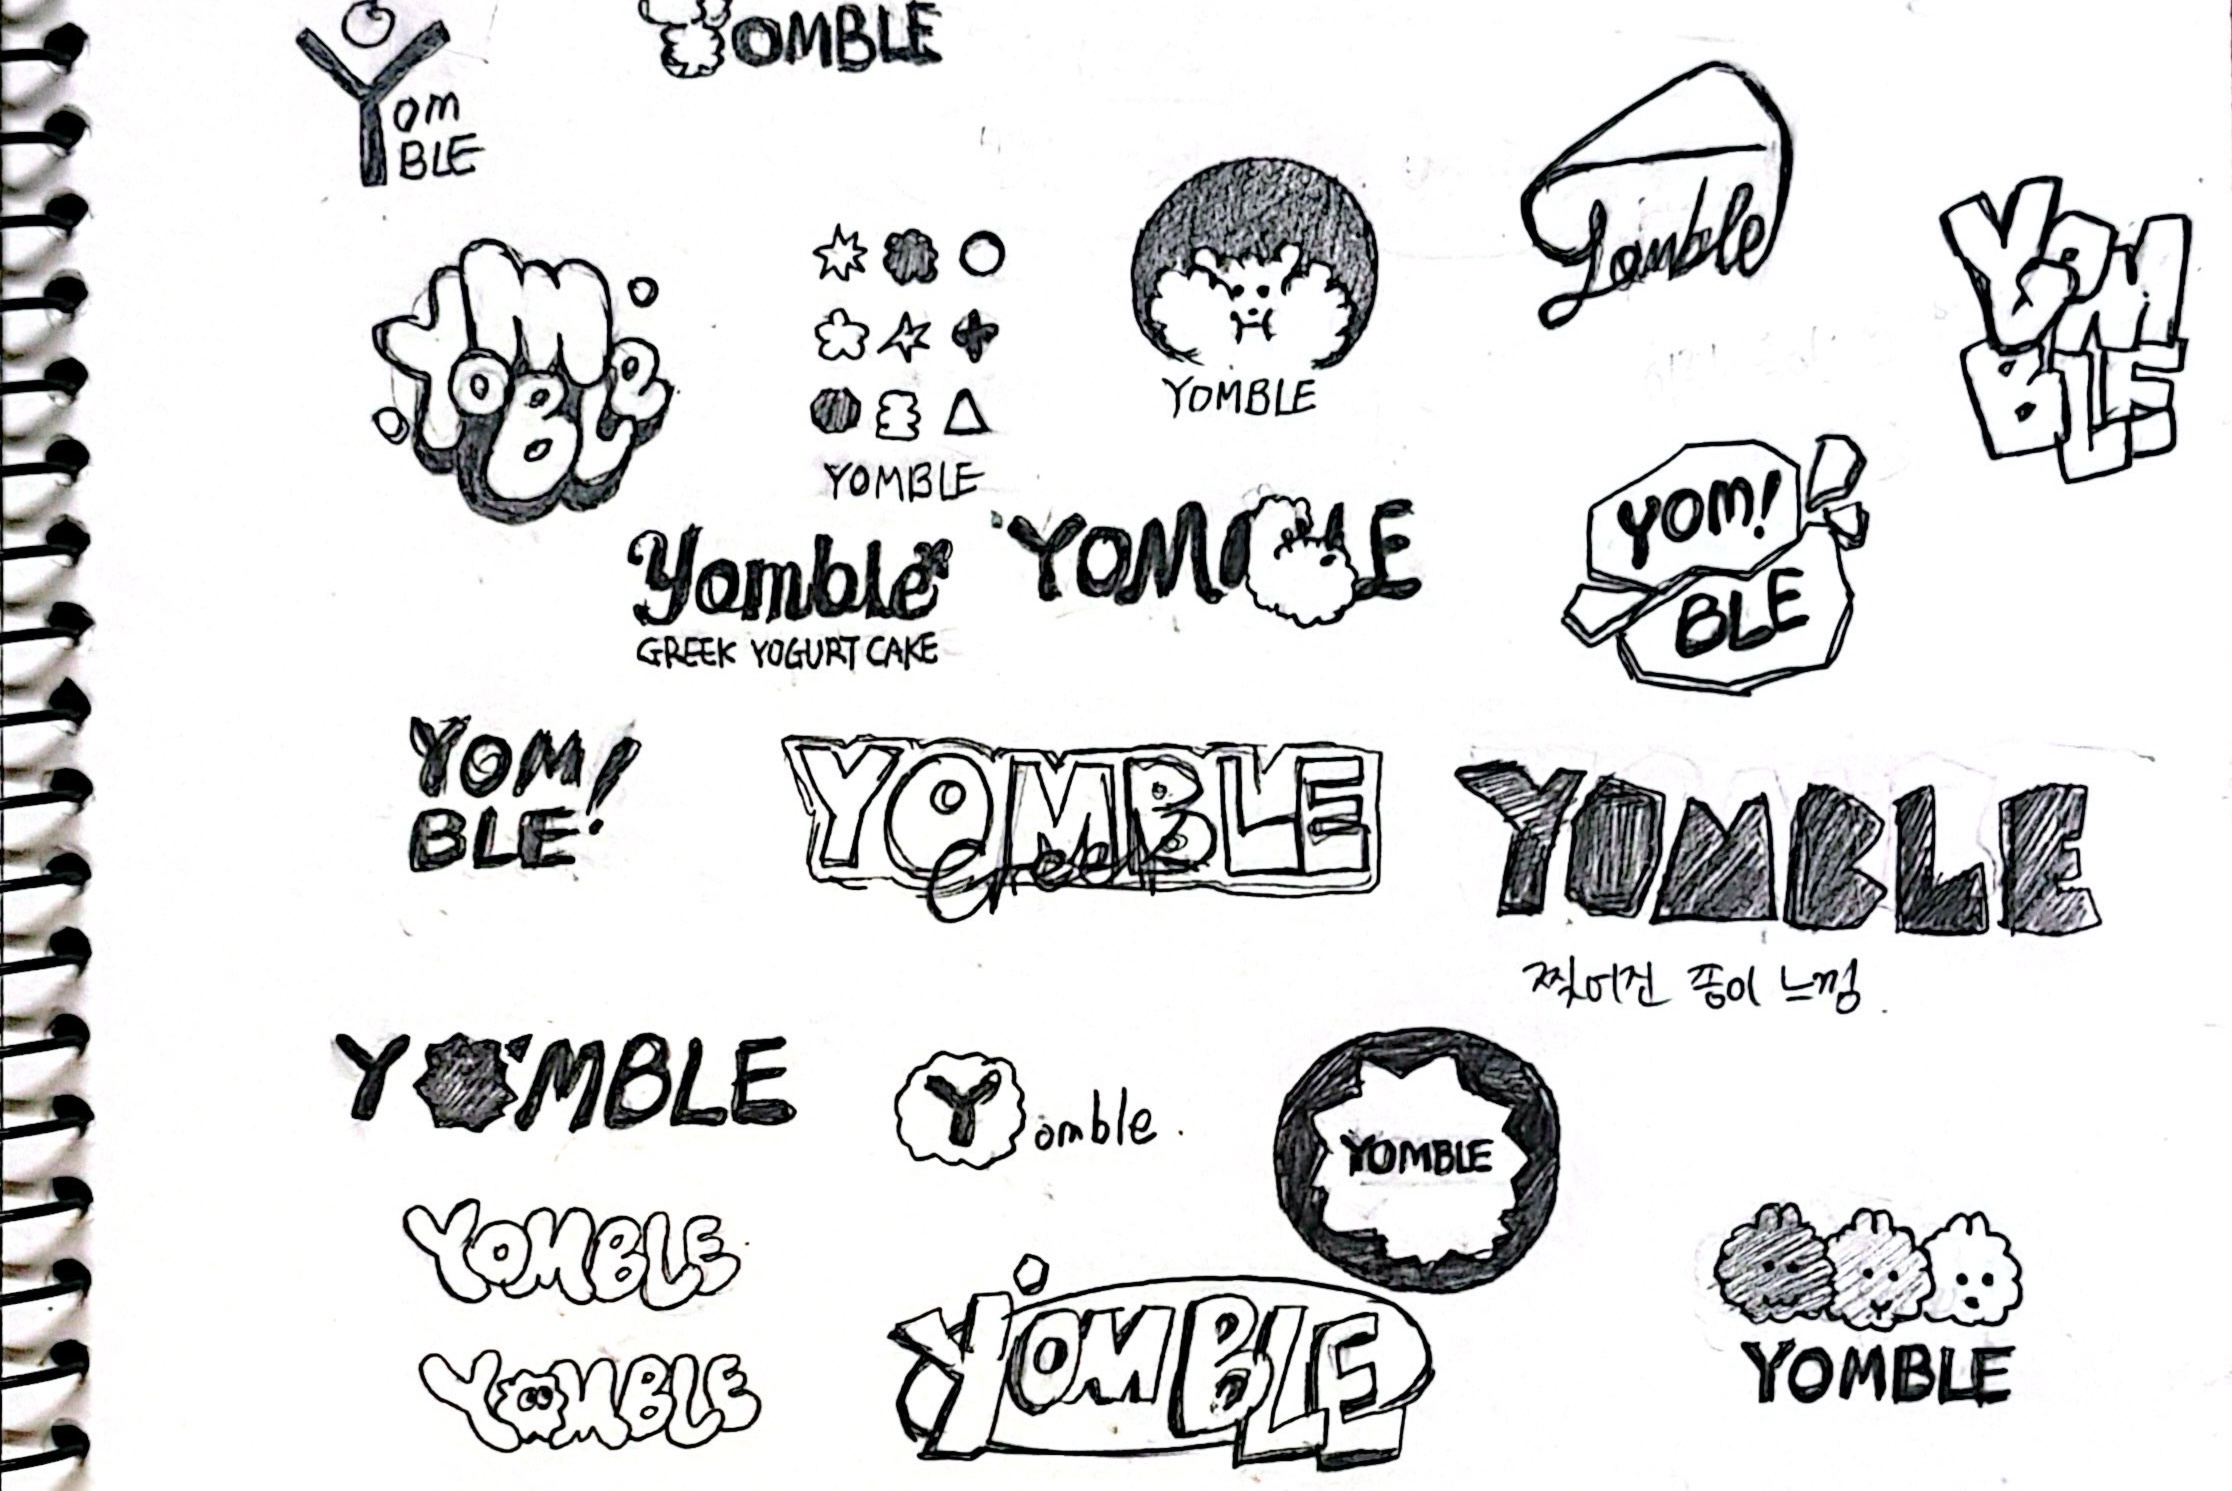 Yom
BLE
YOMBLE
Yomble
YOM
BLE
YomBle
YOMBLE
YOMBLE
Yomble
GREEK YOGURT CAKE
YOMBLE
YOM!
BLE
YOM!
BLE
YOMBLE
Greek
YOMBLE
찢어진 종이 느낌
YOMBLE
Yomble.
YOMBLE
YOMBLE
YOMBLE
YOMBLE
YOMBLE